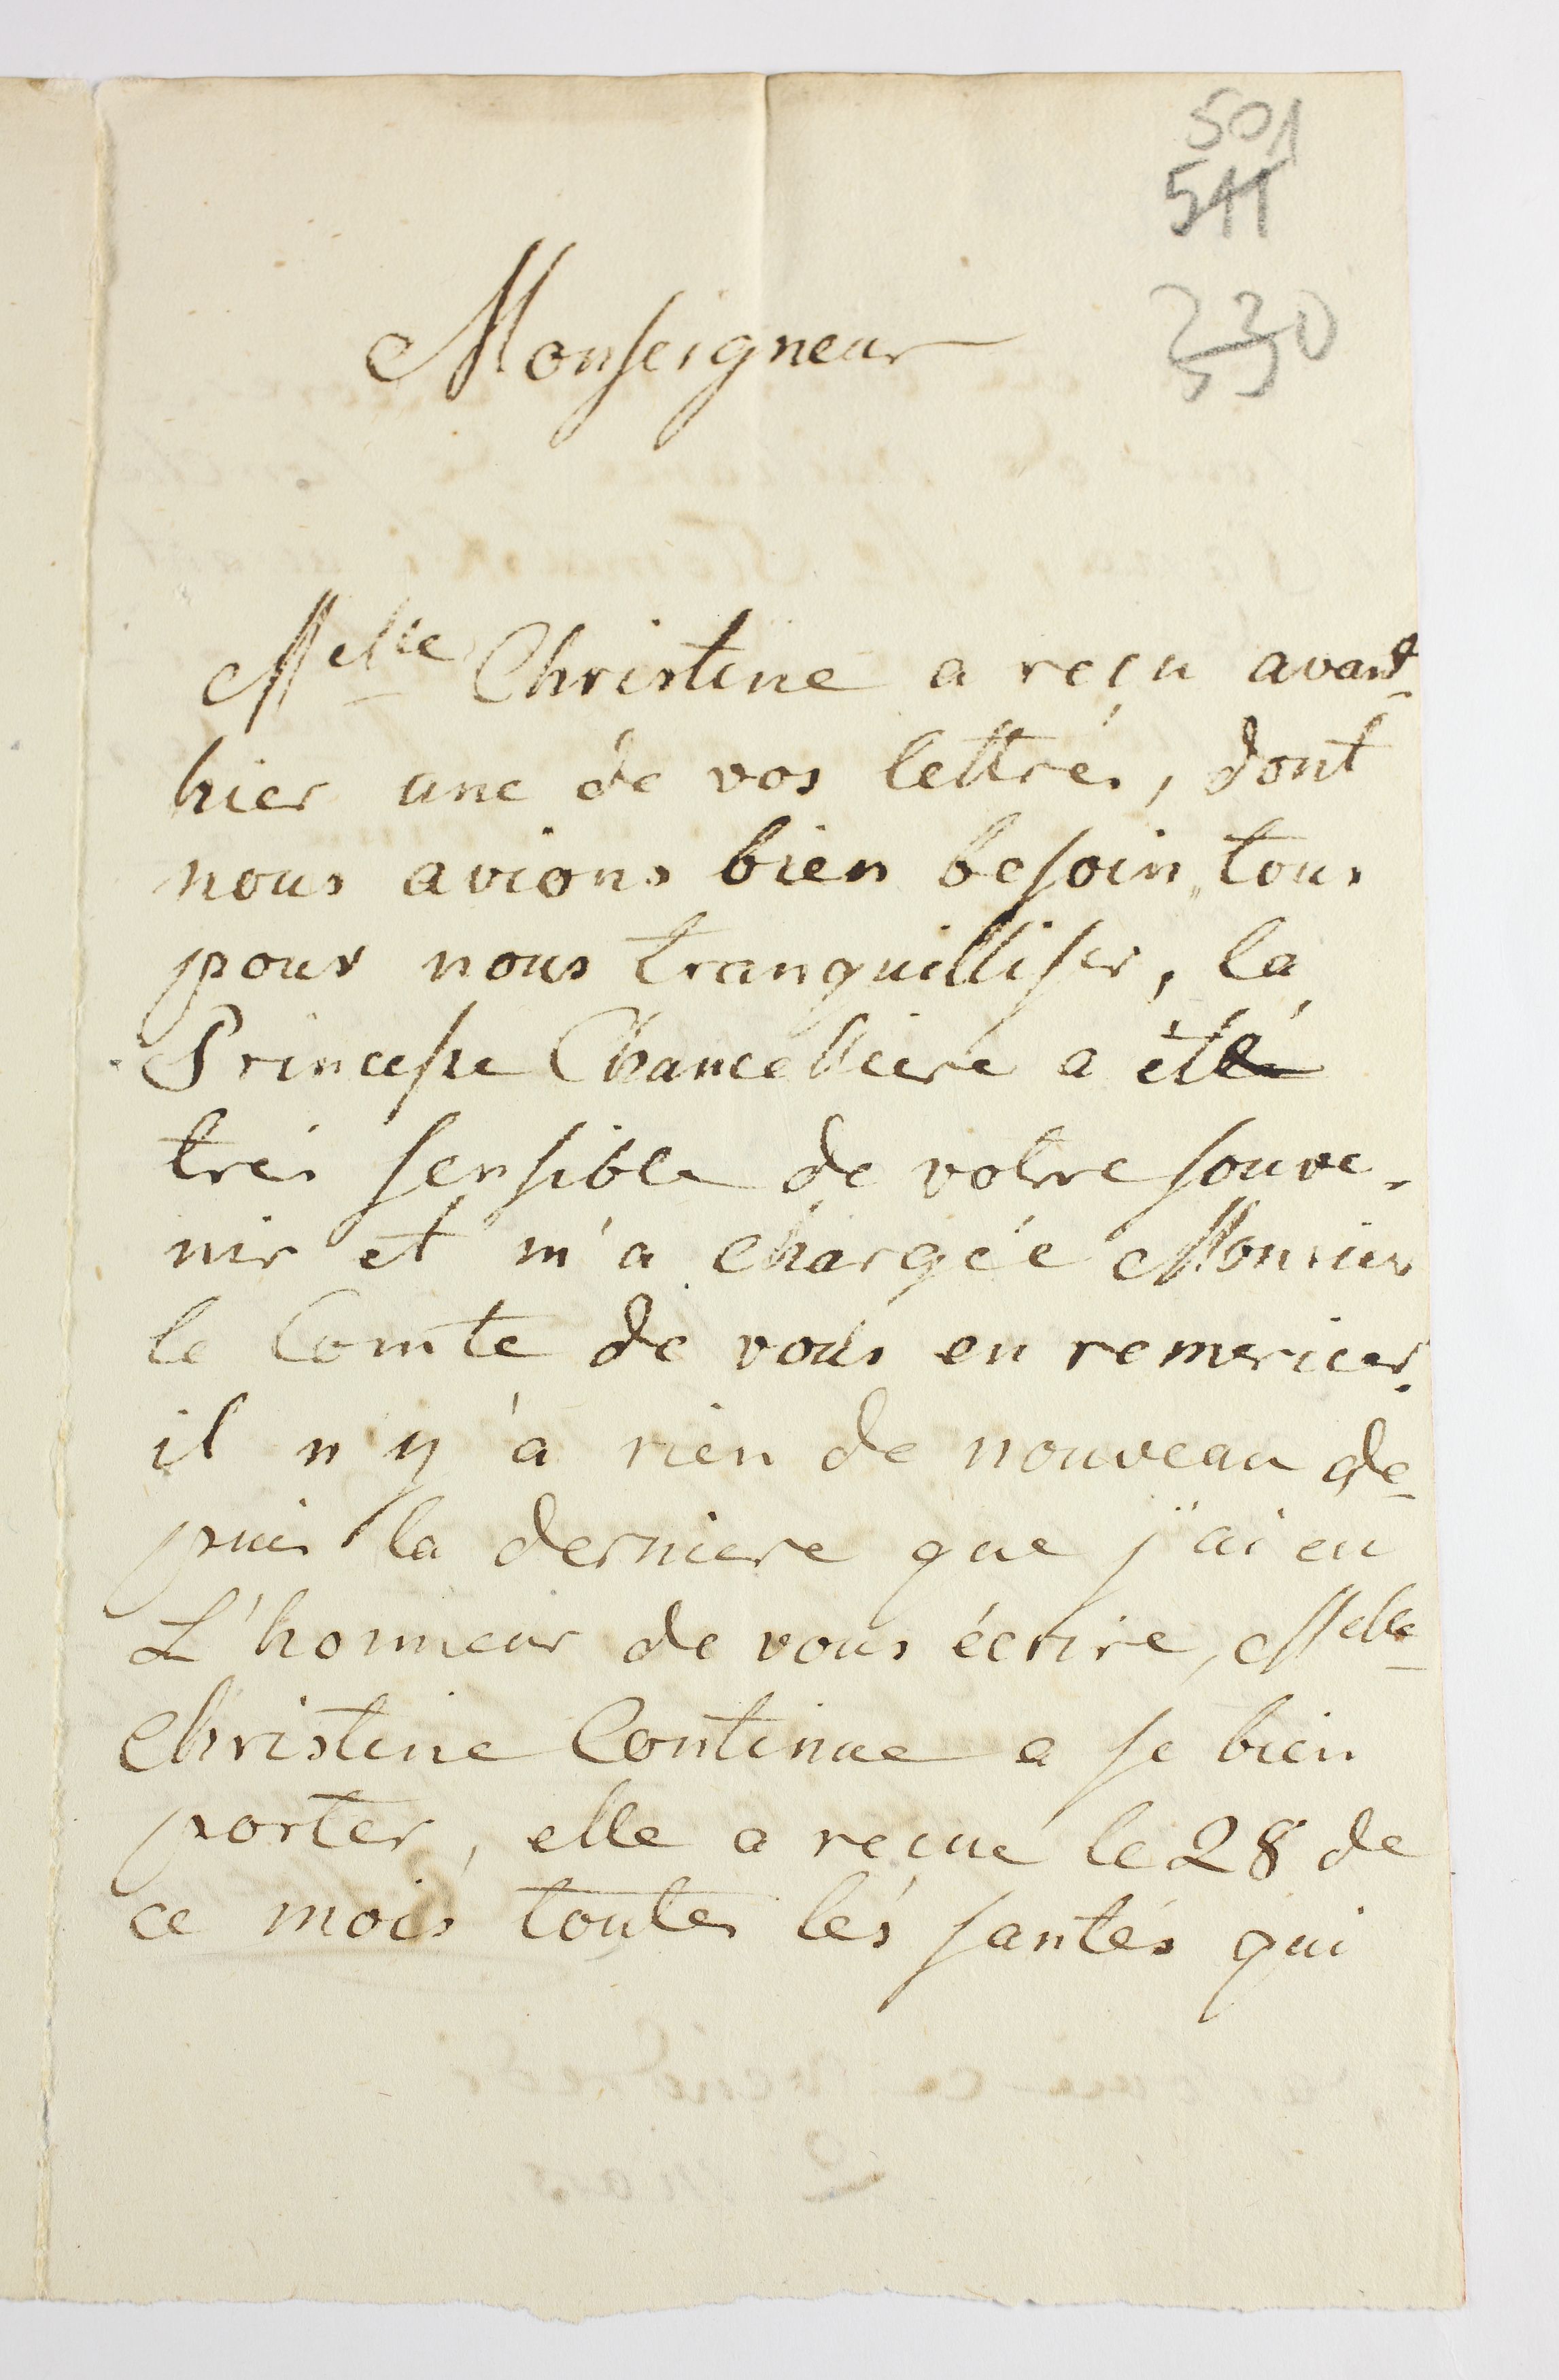 501
511
330
Monseigneur
Melle Christine a reçu avant-
hier une de vos lettres, dont
nous avions bien besoin tous
pour nous tranquilliser, la
Princesse Chancelliere a été
tres sensible de votre souve-
nir et m'a chargée Monsieur
le Comte de vous en remercier.
il n'y a rien de nouveau de-
puis la derniere que j'ai eu
L'honneur de vous écrire, Melle
Christine Continue a se bien
porter, elle a reçue le 28 de
ce mois toutes les santés qui